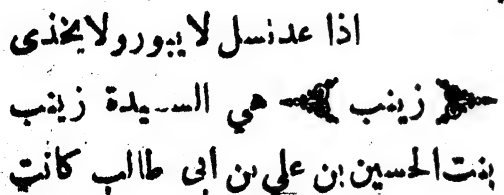 اذا عد نسل لا يبور ولا يخذى
زينب هي السيدة زينب
بنت الحسين بن علي بن ابى طالب كانت